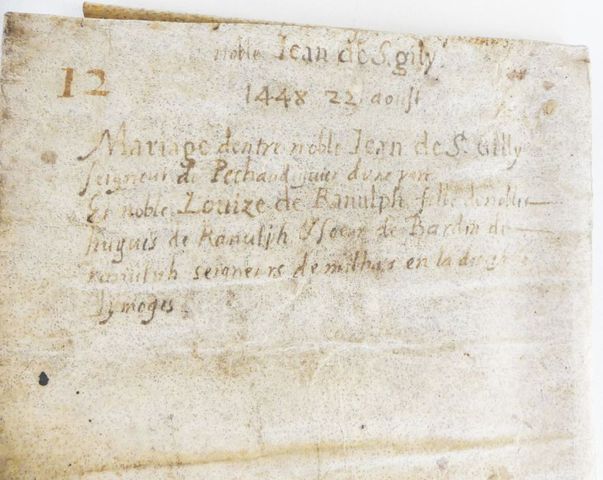 noble Jean de S. gily
12
1448 22 aoust
Mariage dentre noble Jean de S. Gilly
seigneur de Pechaudiguier dune part
Et noble Louize de Ranulph fille de noble
hugues de Ranulph & soeur de Bardin de
ranulph seigneurs de milhas en la
lymoges